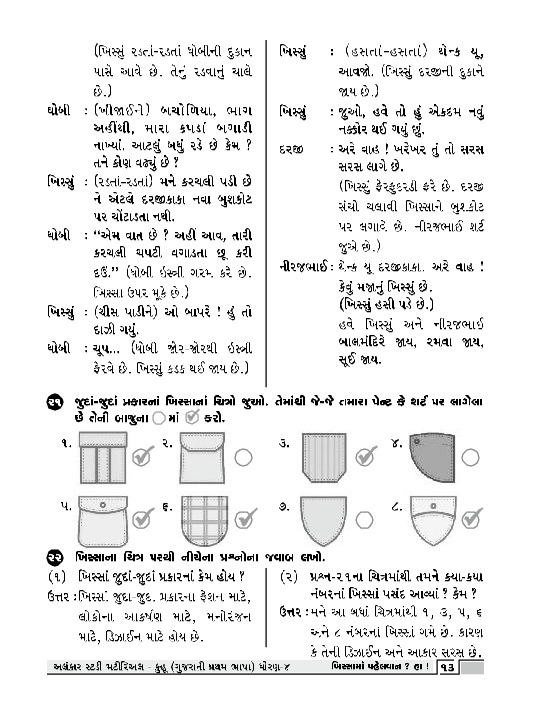 (ખિસ્સું રડતાં-રડતાં ધોબીની દુકાન
પાસે આવે છે. તેનું રડવાનું ચાલે
છે.)
ધોબી : (ખીજાઈને) બચોળિયા, ભાગ
અહીંથી, મારા કપડાં બગાડી
નાખ્યાં. આટલું બધું રડે છે કેમ ?
તને કોણ વઢ્યું છે ?
ખિસ્સું : (રડતાં-રડતાં) મને કરચલી પડી છે
ને એટલે દરજીકાકા નવા બુશકોટ
પર ચોંટાડતા નથી.
ધોબી : “એમ વાત છે ? અહીં આવ, તારી
કરચલી ચપટી વગાડતા છૂ કરી
દઉં.” (ધોબી ઇસ્ત્રી ગરમ કરે છે.
ખિસ્સા ઉપર મૂકે છે.)
ખિસ્સું : (ચીસ પાડીને) ઓ બાપરે ! હું તો
દાઝી ગયું.
ધોબી : ચૂપ... (ધોબી જોર-જોરથી ઇસ્ત્રી
ફેરવે છે. ખિસ્સું કડક થઈ જાય છે.)
ખિસ્સું : (હસતાં-હસતાં) થેન્ક યૂ,
આવજો. (ખિસ્સું દરજીની દુકાને
જાય છે.)
ખિસ્સું : જુઓ, હવે તો હું એકદમ નવું
નક્કોર થઈ ગયું છું.
દરજી : અરે વાહ ! ખરેખર તું તો સરસ
સરસ લાગે છે.
(ખિસ્સું ફેરફુદરડી ફરે છે. દરજી
સંચો ચલાવી ખિસ્સાને બુશકોટ
પર લગાવે છે. નીરજભાઈ શર્ટ
જુએ છે.)
નીરજભાઈ : થેન્ક યૂ દરજીકાકા. અરે વાહ !
કેવું મજાનું ખિસ્સું છે.
(ખિસ્સું હસી પડે છે.)
હવે ખિસ્સું અને નીરજભાઈ
બાલમંદિરે જાય, રમવા જાય,
સૂઈ જાય.
૨૧ જુદાં-જુદાં પ્રકારનાં ખિસ્સાનાં ચિત્રો જુઓ. તેમાંથી જે-જે તમારા પેન્ટ કે શર્ટ પર લાગેલા
છે તેની બાજુના માં કરો.
૧. ૨. ૩. ૪.
૫. ૬. ૭. ૮.
૨૨ ખિસ્સાના ચિત્ર પરથી નીચેના પ્રશ્નોના જવાબ લખો.
(૧) ખિસ્સાં જુદાં-જુદાં પ્રકારનાં કેમ હોય ?
ઉત્તર : ખિસ્સાં જુદા-જુદા પ્રકારના ફેશન માટે,
લોકોના આકર્ષણ માટે, મનોરંજન
માટે, ડિઝાઈન માટે હોય છે.
(૨) પ્રશ્ન-૨૧ના ચિત્રમાંથી તમને કયા-કયા
નંબરનાં ખિસ્સાં પસંદ આવ્યાં ? કેમ ?
ઉત્તર : મને આ બધાં ચિત્રમાંથી ૧, ૩, ૫, ૬
અને ૮ નંબરનાં ખિસ્સાં ગમે છે. કારણ
કે તેની ડિઝાઈન અને આકાર સરસ છે.
અલંકાર સ્ટડી મટીરિઅલ - કુહૂ (ગુજરાતી પ્રથમ ભાષા) ધોરણ-૪ ખિસ્સામાં પહેલવાન ? હા ! ૧૩